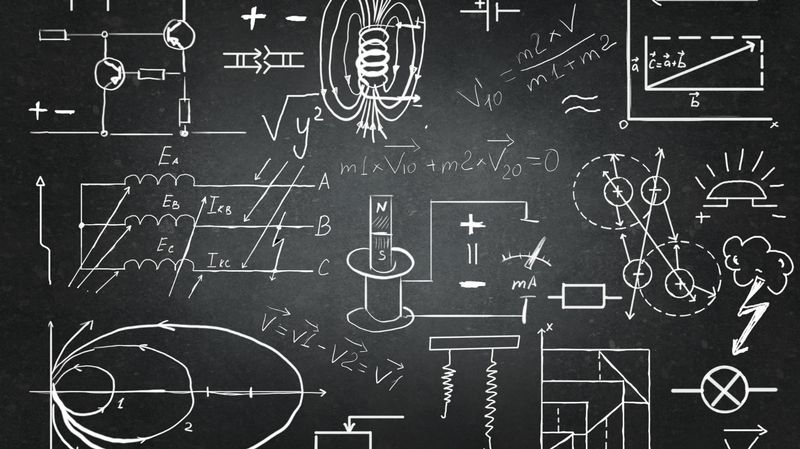 + -
+ -
√y²
V10 = m2×V / m1+m2
≈
a⃗
c⃗=a⃗+b⃗
b⃗
0
x
m1×V⃗10+m2×V⃗20=0
EA
A
EB
IKB
B
EC
IKC
C
N
S
+
=
-
mA
+ -
V⃗=v⃗1-v⃗2=v⃗1
1
2
x